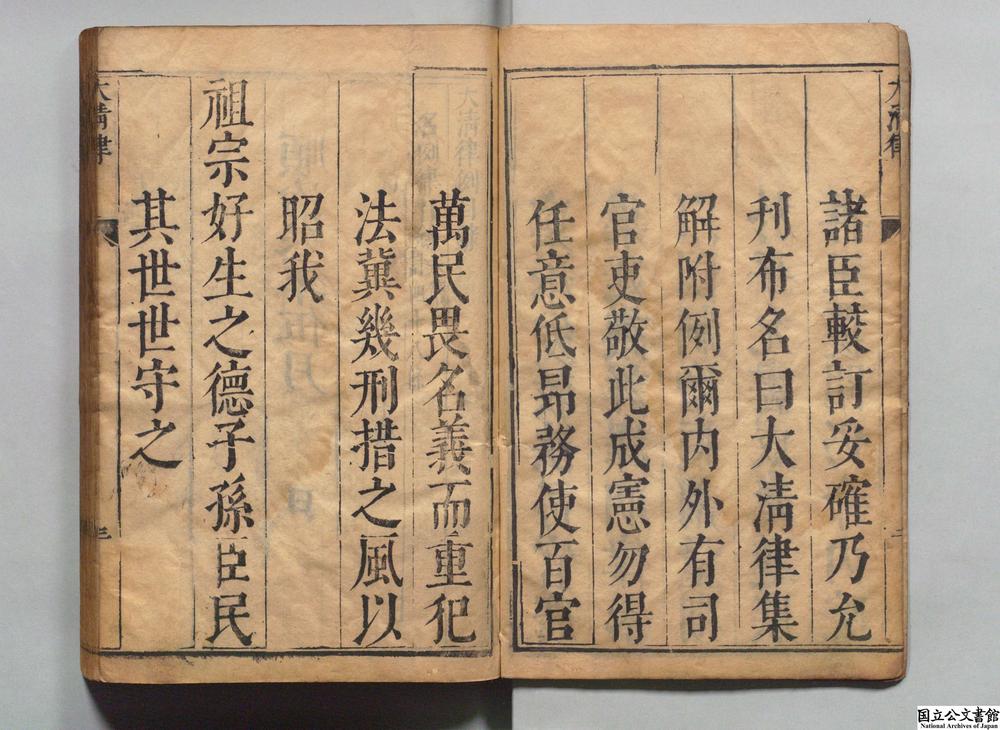 大清律
諸臣較訂妥確乃允
刊布名曰大清律集
解附例爾內外有司
官吏敬此成憲勿得
任意低昂務使百官
萬民畏名義而重犯
法冀幾刑措之風以
昭我
祖宗好生之德子孫臣民
其世世守之
大清律
三
国立公文書館
National Archives of Japan